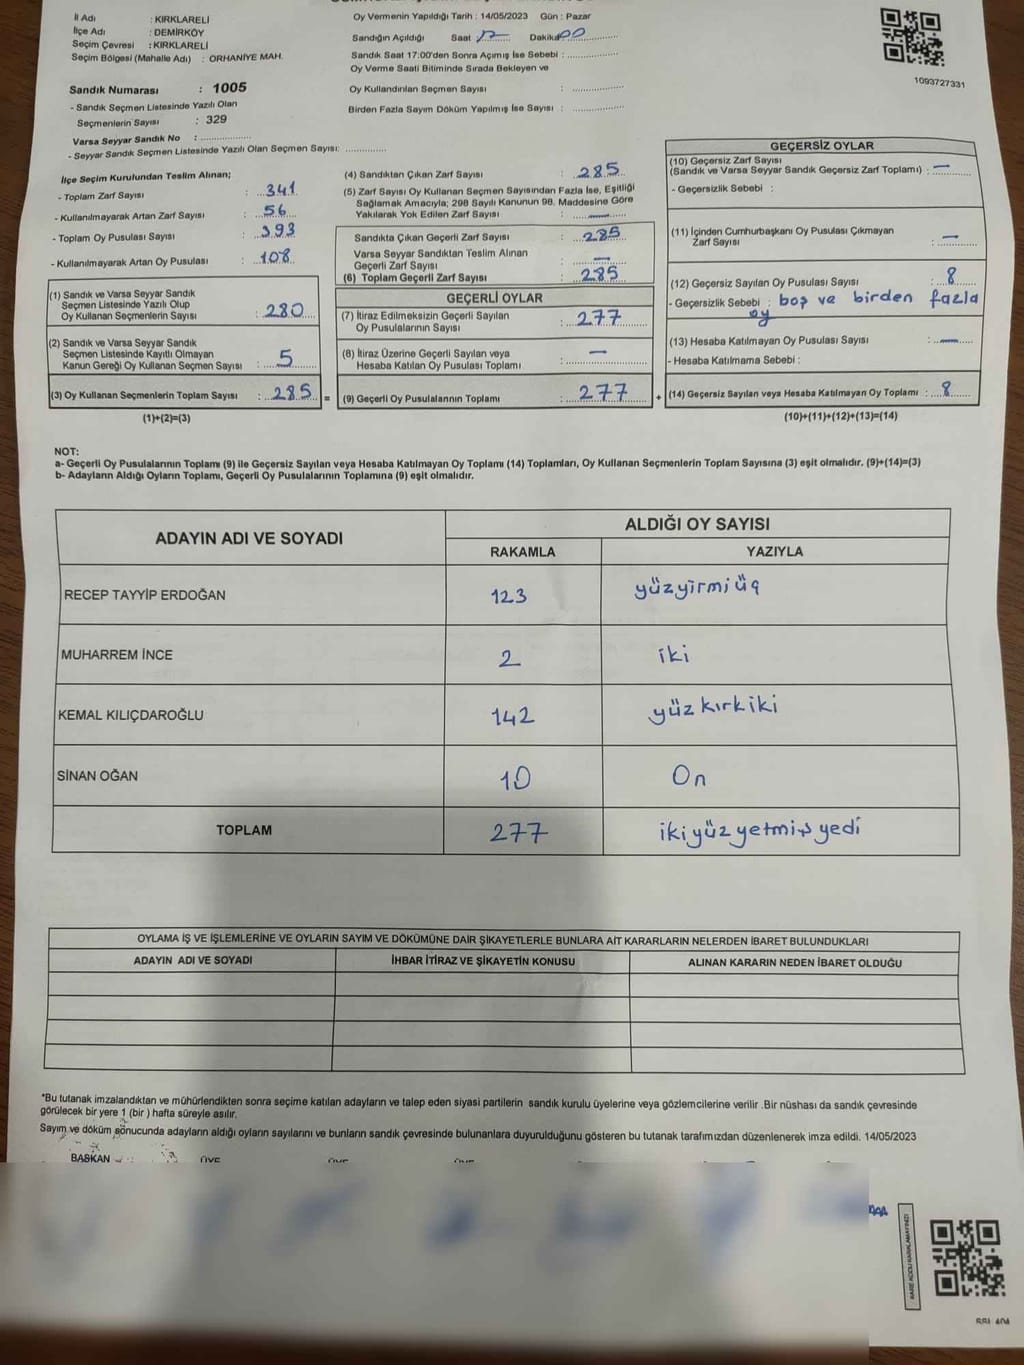 İl Adı : KIRKLARELİ
İlçe Adı : DEMİRKÖY
Seçim Çevresi : KIRKLARELİ
Seçim Bölgesi (Mahalle Adı) : ORHANİYE MAH.
Sandık Numarası : 1005
- Sandık Seçmen Listesinde Yazılı Olan
Seçmenlerin Sayısı : 329
Varsa Seyyar Sandık No :
- Seyyar Sandık Seçmen Listesinde Yazılı Olan Seçmen Sayısı:
Oy Vermenin Yapıldığı Tarih : 14/05/2023 Gün : Pazar
Sandığın Açıldığı Saat 17 Dakika 00
Sandık Saat 17:00'den Sonra Açımış İse Sebebi :
Oy Verme Saati Bitiminde Sırada Bekleyen ve
Oy Kullandırılan Seçmen Sayısı :
Birden Fazla Sayım Döküm Yapılmış İse Sayısı :
1093727331
İlçe Seçim Kurulundan Teslim Alınan;
- Toplam Zarf Sayısı : 341
- Kullanılmayarak Artan Zarf Sayısı : 56
- Toplam Oy Pusulası Sayısı : 393
- Kullanılmayarak Artan Oy Pusulası : 108
(1) Sandık ve Varsa Seyyar Sandık
Seçmen Listesinde Yazılı Olup
Oy Kullanan Seçmenlerin Sayısı : 280
(2) Sandık ve Varsa Seyyar Sandık
Seçmen Listesinde Kayıtlı Olmayan
Kanun Gereği Oy Kullanan Seçmen Sayısı : 5
(3) Oy Kullanan Seçmenlerin Toplam Sayısı : 285 =
(1)+(2)=(3)
(4) Sandıktan Çıkan Zarf Sayısı : 285
(5) Zarf Sayısı Oy Kullanan Seçmen Sayısından Fazla İse, Eşitliği
Sağlamak Amacıyla; 298 Sayılı Kanunun 98. Maddesine Göre
Yakılarak Yok Edilen Zarf Sayısı : —
Sandıkta Çıkan Geçerli Zarf Sayısı : 285
Varsa Seyyar Sandıktan Teslim Alınan
Geçerli Zarf Sayısı : —
(6) Toplam Geçerli Zarf Sayısı : 285
GEÇERLİ OYLAR
(7) İtiraz Edilmeksizin Geçerli Sayılan
Oy Pusulalarının Sayısı : 277
(8) İtiraz Üzerine Geçerli Sayılan veya
Hesaba Katılan Oy Pusulası Toplamı : —
(9) Geçerli Oy Pusulalarının Toplamı : 277 +
GEÇERSİZ OYLAR
(10) Geçersiz Zarf Sayısı
(Sandık ve Varsa Seyyar Sandık Geçersiz Zarf Toplamı) : —
- Geçersizlik Sebebi :
(11) İçinden Cumhurbaşkanı Oy Pusulası Çıkmayan
Zarf Sayısı : —
(12) Geçersiz Sayılan Oy Pusulası Sayısı : 8
- Geçersizlik Sebebi : boş ve birden fazla
oy
(13) Hesaba Katılmayan Oy Pusulası Sayısı : —
- Hesaba Katılmama Sebebi :
(14) Geçersiz Sayılan veya Hesaba Katılmayan Oy Toplamı : 8
(10)+(11)+(12)+(13)=(14)
NOT:
a- Geçerli Oy Pusulalarının Toplamı (9) ile Geçersiz Sayılan veya Hesaba Katılmayan Oy Toplamı (14) Toplamları, Oy Kullanan Seçmenlerin Toplam Sayısına (3) eşit olmalıdır. (9)+(14)=(3)
b- Adayların Aldığı Oyların Toplamı, Geçerli Oy Pusulalarının Toplamına (9) eşit olmalıdır.
ADAYIN ADI VE SOYADI
ALDIĞI OY SAYISI
RAKAMLA YAZIYLA
RECEP TAYYİP ERDOĞAN 123 yüzyirmiüç
MUHARREM İNCE 2 iki
KEMAL KILIÇDAROĞLU 142 yüzkırkiki
SİNAN OĞAN 10 On
TOPLAM 277 ikiyüzyetmişyedi
OYLAMA İŞ VE İŞLEMLERİNE VE OYLARIN SAYIM VE DÖKÜMÜNE DAİR ŞİKAYETLERLE BUNLARA AİT KARARLARIN NELERDEN İBARET BULUNDUKLARI
ADAYIN ADI VE SOYADI İHBAR İTİRAZ VE ŞİKAYETİN KONUSU ALINAN KARARIN NEDEN İBARET OLDUĞU
*Bu tutanak imzalandıktan ve mühürlendikten sonra seçime katılan adayların ve talep eden siyasi partilerin sandık kurulu üyelerine veya gözlemcilerine verilir .Bir nüshası da sandık çevresinde
görülecek bir yere 1 (bir ) hafta süreyle asılır.
Sayım ve döküm sonucunda adayların aldığı oyların sayılarını ve bunların sandık çevresinde bulunanlara duyurulduğunu gösteren bu tutanak tarafımızdan düzenlenerek imza edildi. 14/05/2023
BAŞKAN ÜYE ÜYE ÜYE